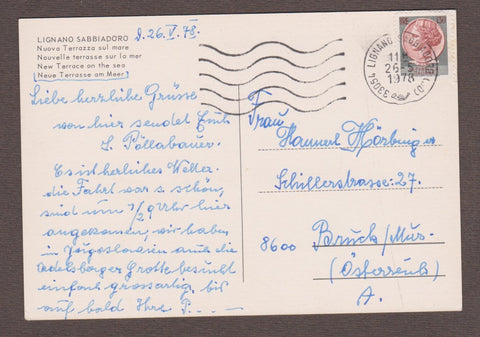 LIGNANO SABBIADORO
Nuova Terrazza sul mare
Nouvelle terrasse sur la mer
New Terrace on the sea
(Neue Terrasse am Meer)
d. 26. V. 78.
Liebe herzliche Grüsse
von hier sendet
L. Pöllabauer.
Es ist herrliches Wetter
die Fahrt war s. schön,
sind um 1/2 9 Uhr hier
angekommen, wir haben
in Jugoslawien auch die
Adelsberger Grotte besucht
einfach grossartig, bis
auf bald Ihre P....
33054 LIGNANO SABBIADORO (UD)
26-5
1978
Frau
Hannerl Hörbing
Schillerstrasse 27.
8600 Bruck/Mur.
(Österreich)
A.